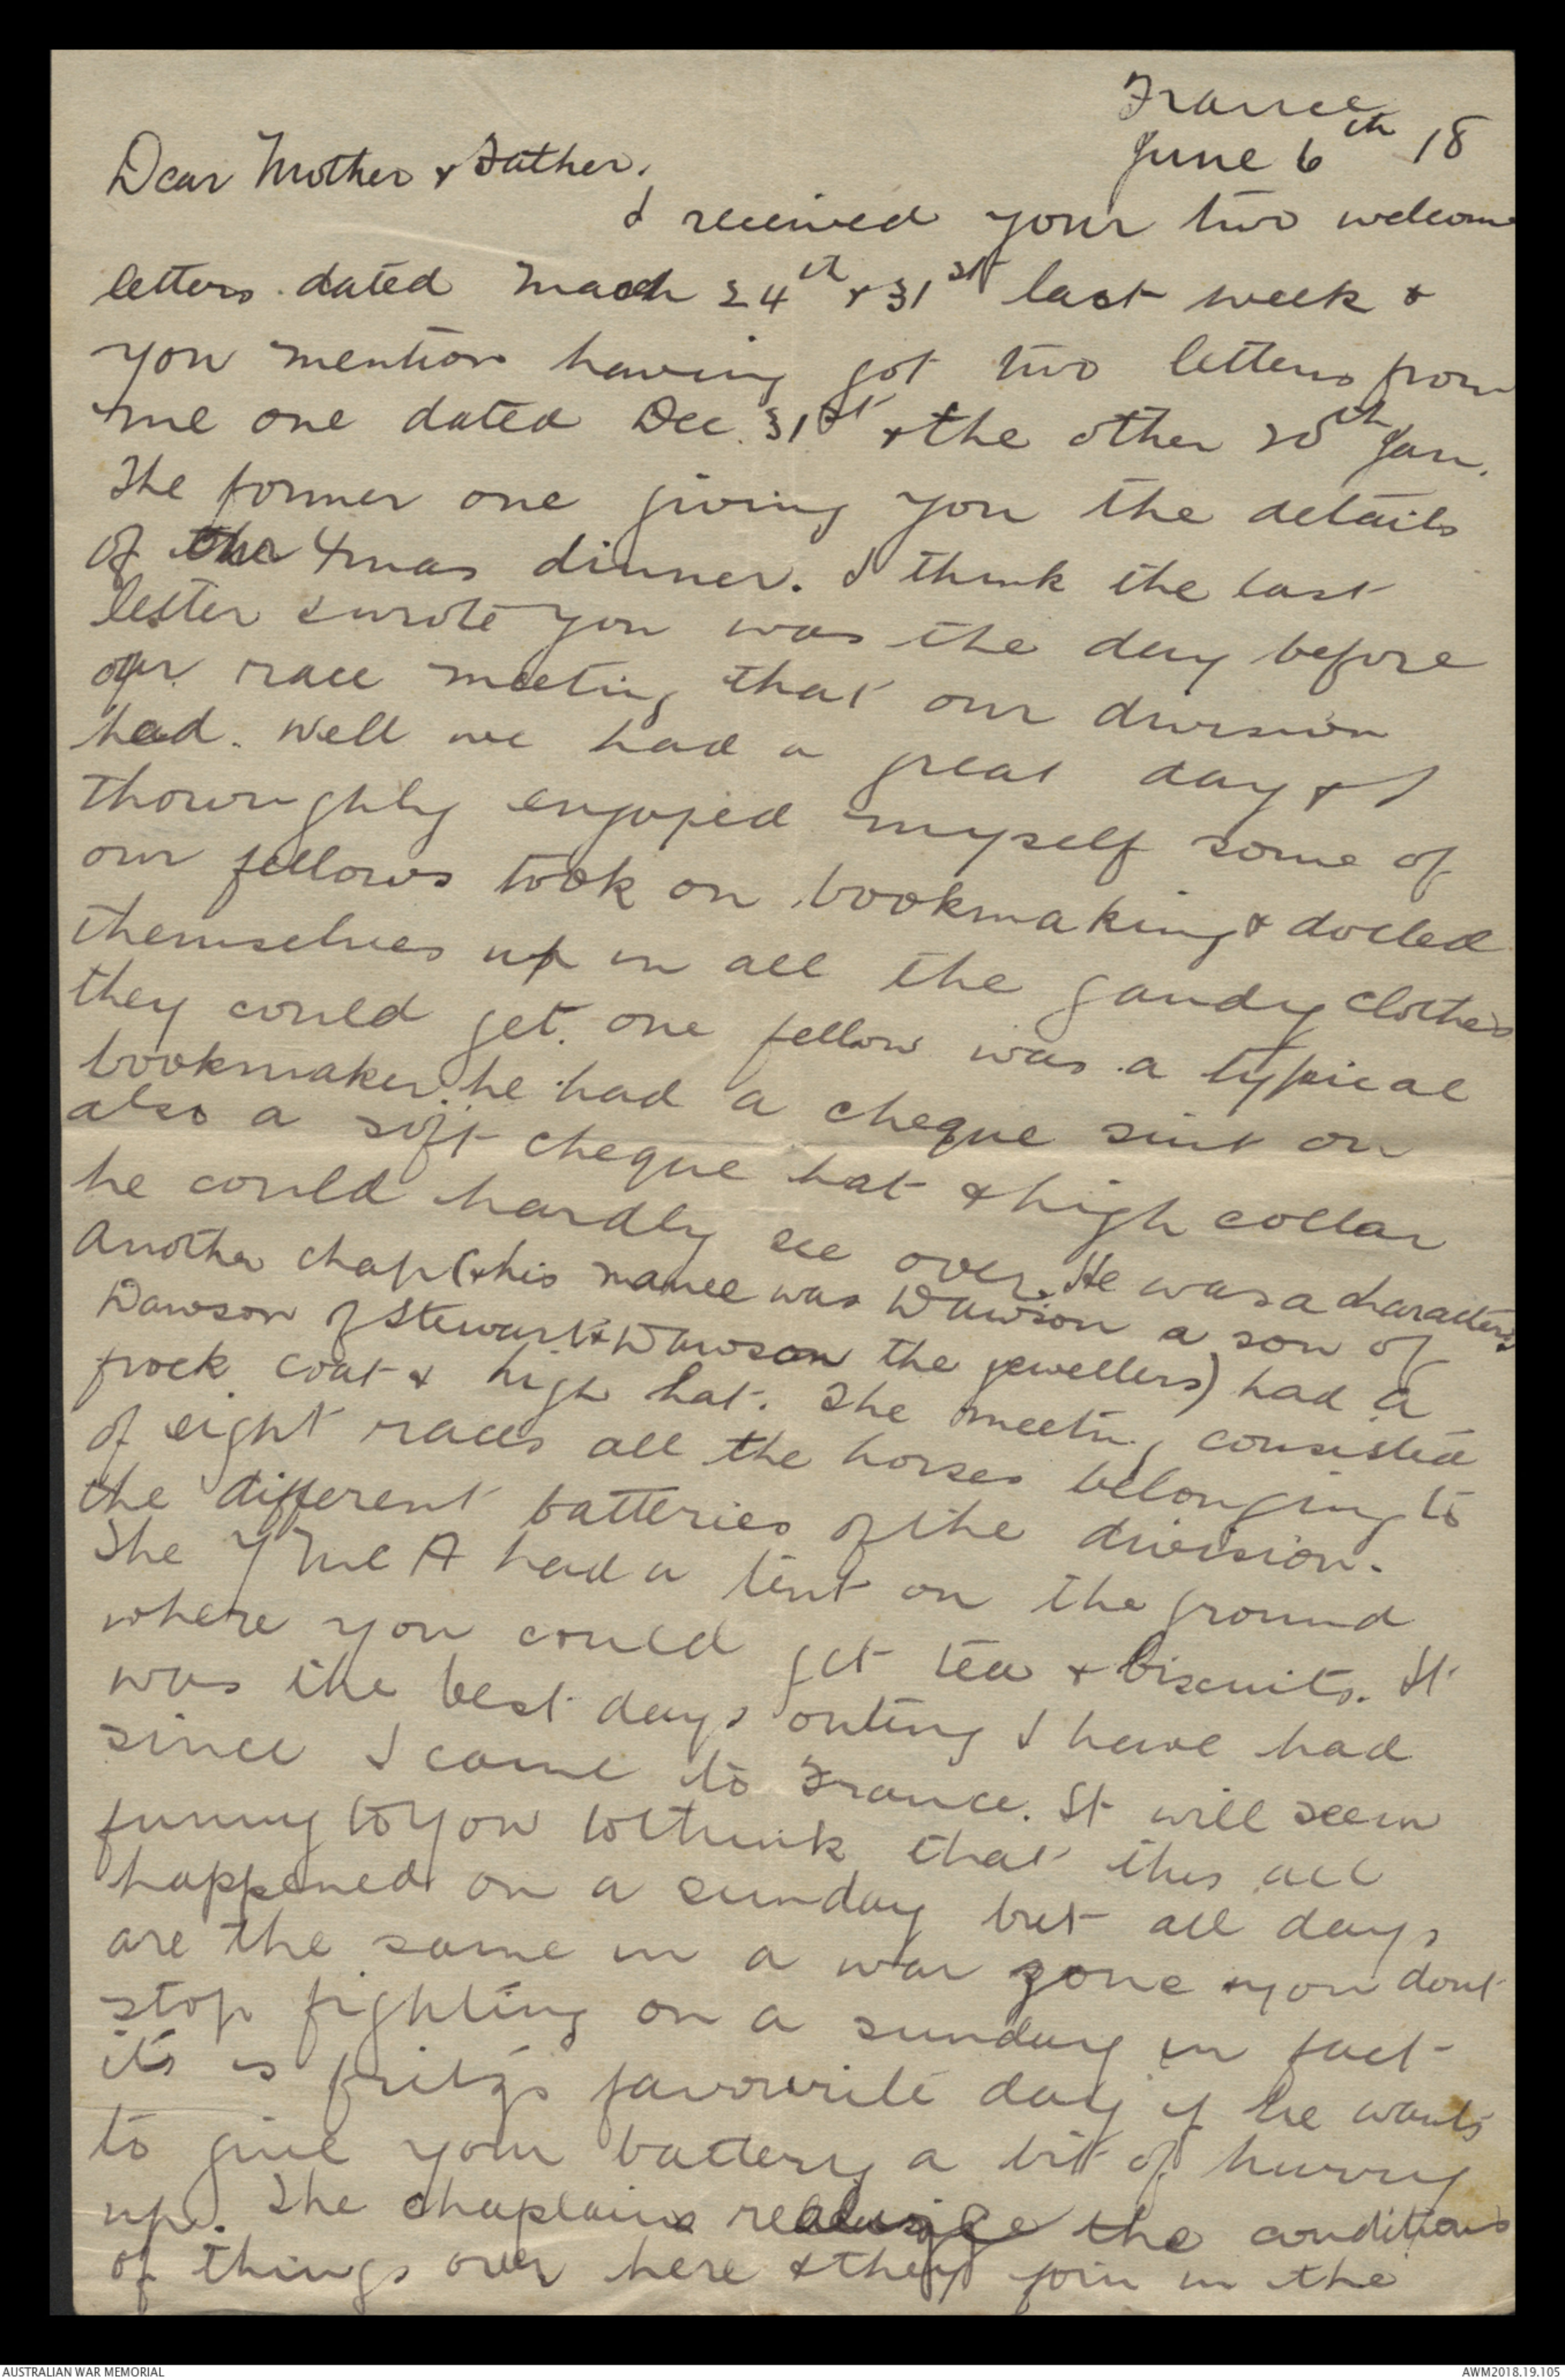 France
June 6th 18
Dear Mother & Father,
I received your two welcome
letters dated March 24th & 31st last week &
you mention having got two letters from
me one dated Dec. 31st & the other 20th Jan.
The former one giving you the details
of the Xmas dinner. I think the last
letter I wrote you was the day before
our race meeting that our division
had. Well we had a great day & I
thouroughly enjoyed myself some of
our fellows took on bookmaking & dolled
themselves up in all the gaudy clothes
they could get. one fellow was a typical
bookmaker he had a cheque suit on
also a soft cheque hat & high collar
he could hardly see over. He was a character
Another chap (& his name was Dawson a son of
Dawson of Stewart & Dawson the jewellers) had a
frock coat & high hat. The meeting consisted
of eight races all the horses belonging to
the different batteries of the division.
The YMCA had a tent on the ground
where you could get tea & biscuits. It
was the best days outing I have had
since I came to France. It will seem
funny to you to think that this all
happened on a sunday but all days
are the same in a war zone & you dont
stop fighting on a sunday in fact
its is fritz's favourite day if he wants
to give your battery a bit of hurry
up. The chaplains realize the conditions
of things over here & they join in the
AUSTRALIAN WAR MEMORIAL
AWM2018.19.105